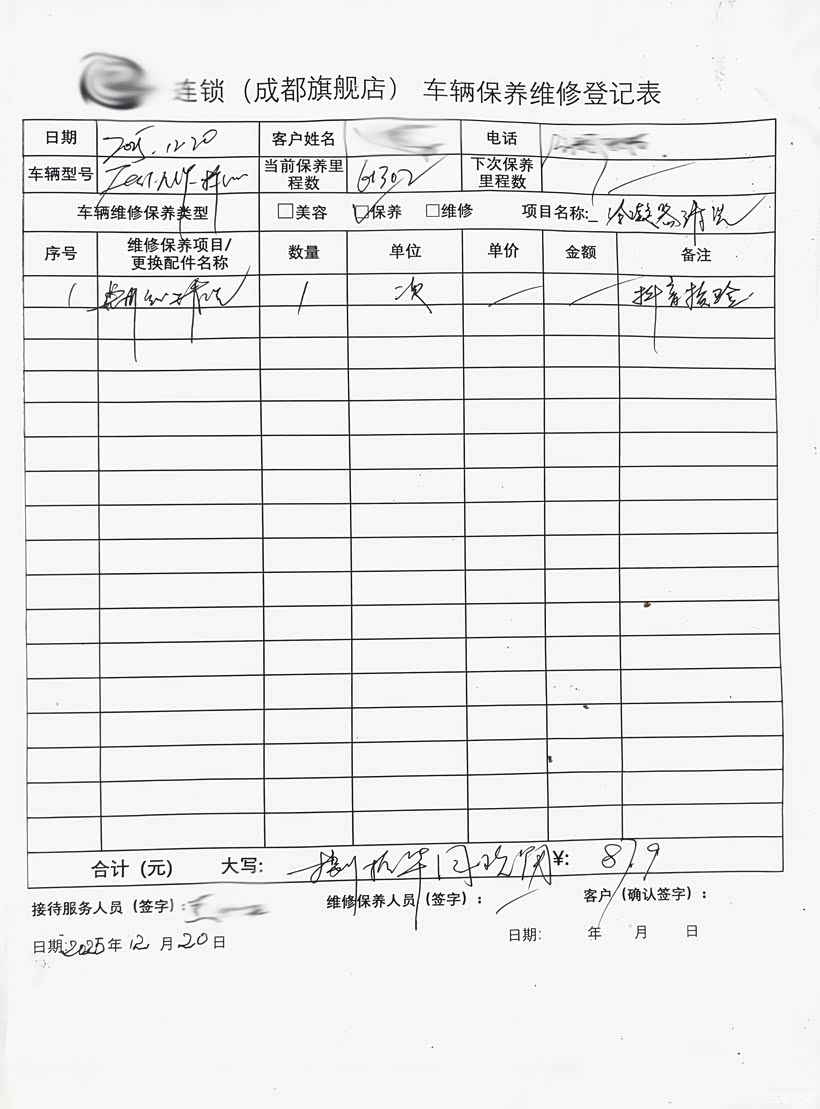 连锁（成都旗舰店） 车辆保养维修登记表
日期 2025.12.20 客户姓名 电话
车辆型号 当前保养里程数 61302 下次保养里程数
车辆维修保养类型 □美容 □保养 □维修 项目名称: 冷凝器清洗
序号 维修保养项目/更换配件名称 数量 单位 单价 金额 备注
1 1 次 抖音核验
合计（元） 大写: ¥: 87.9
接待服务人员（签字）: 维修保养人员（签字）: 客户（确认签字）:
日期:2025年12月20日 日期: 年 月 日